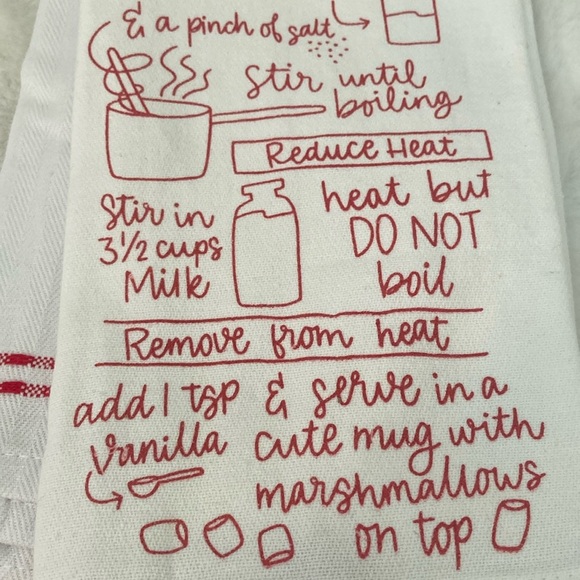 & a pinch of salt
Stir until
boiling
Reduce Heat
Stir in
3 1/2 cups
Milk
heat but
DO NOT
boil
Remove from heat
add 1 tsp
vanilla
& serve in a
cute mug with
marshmallows
on top